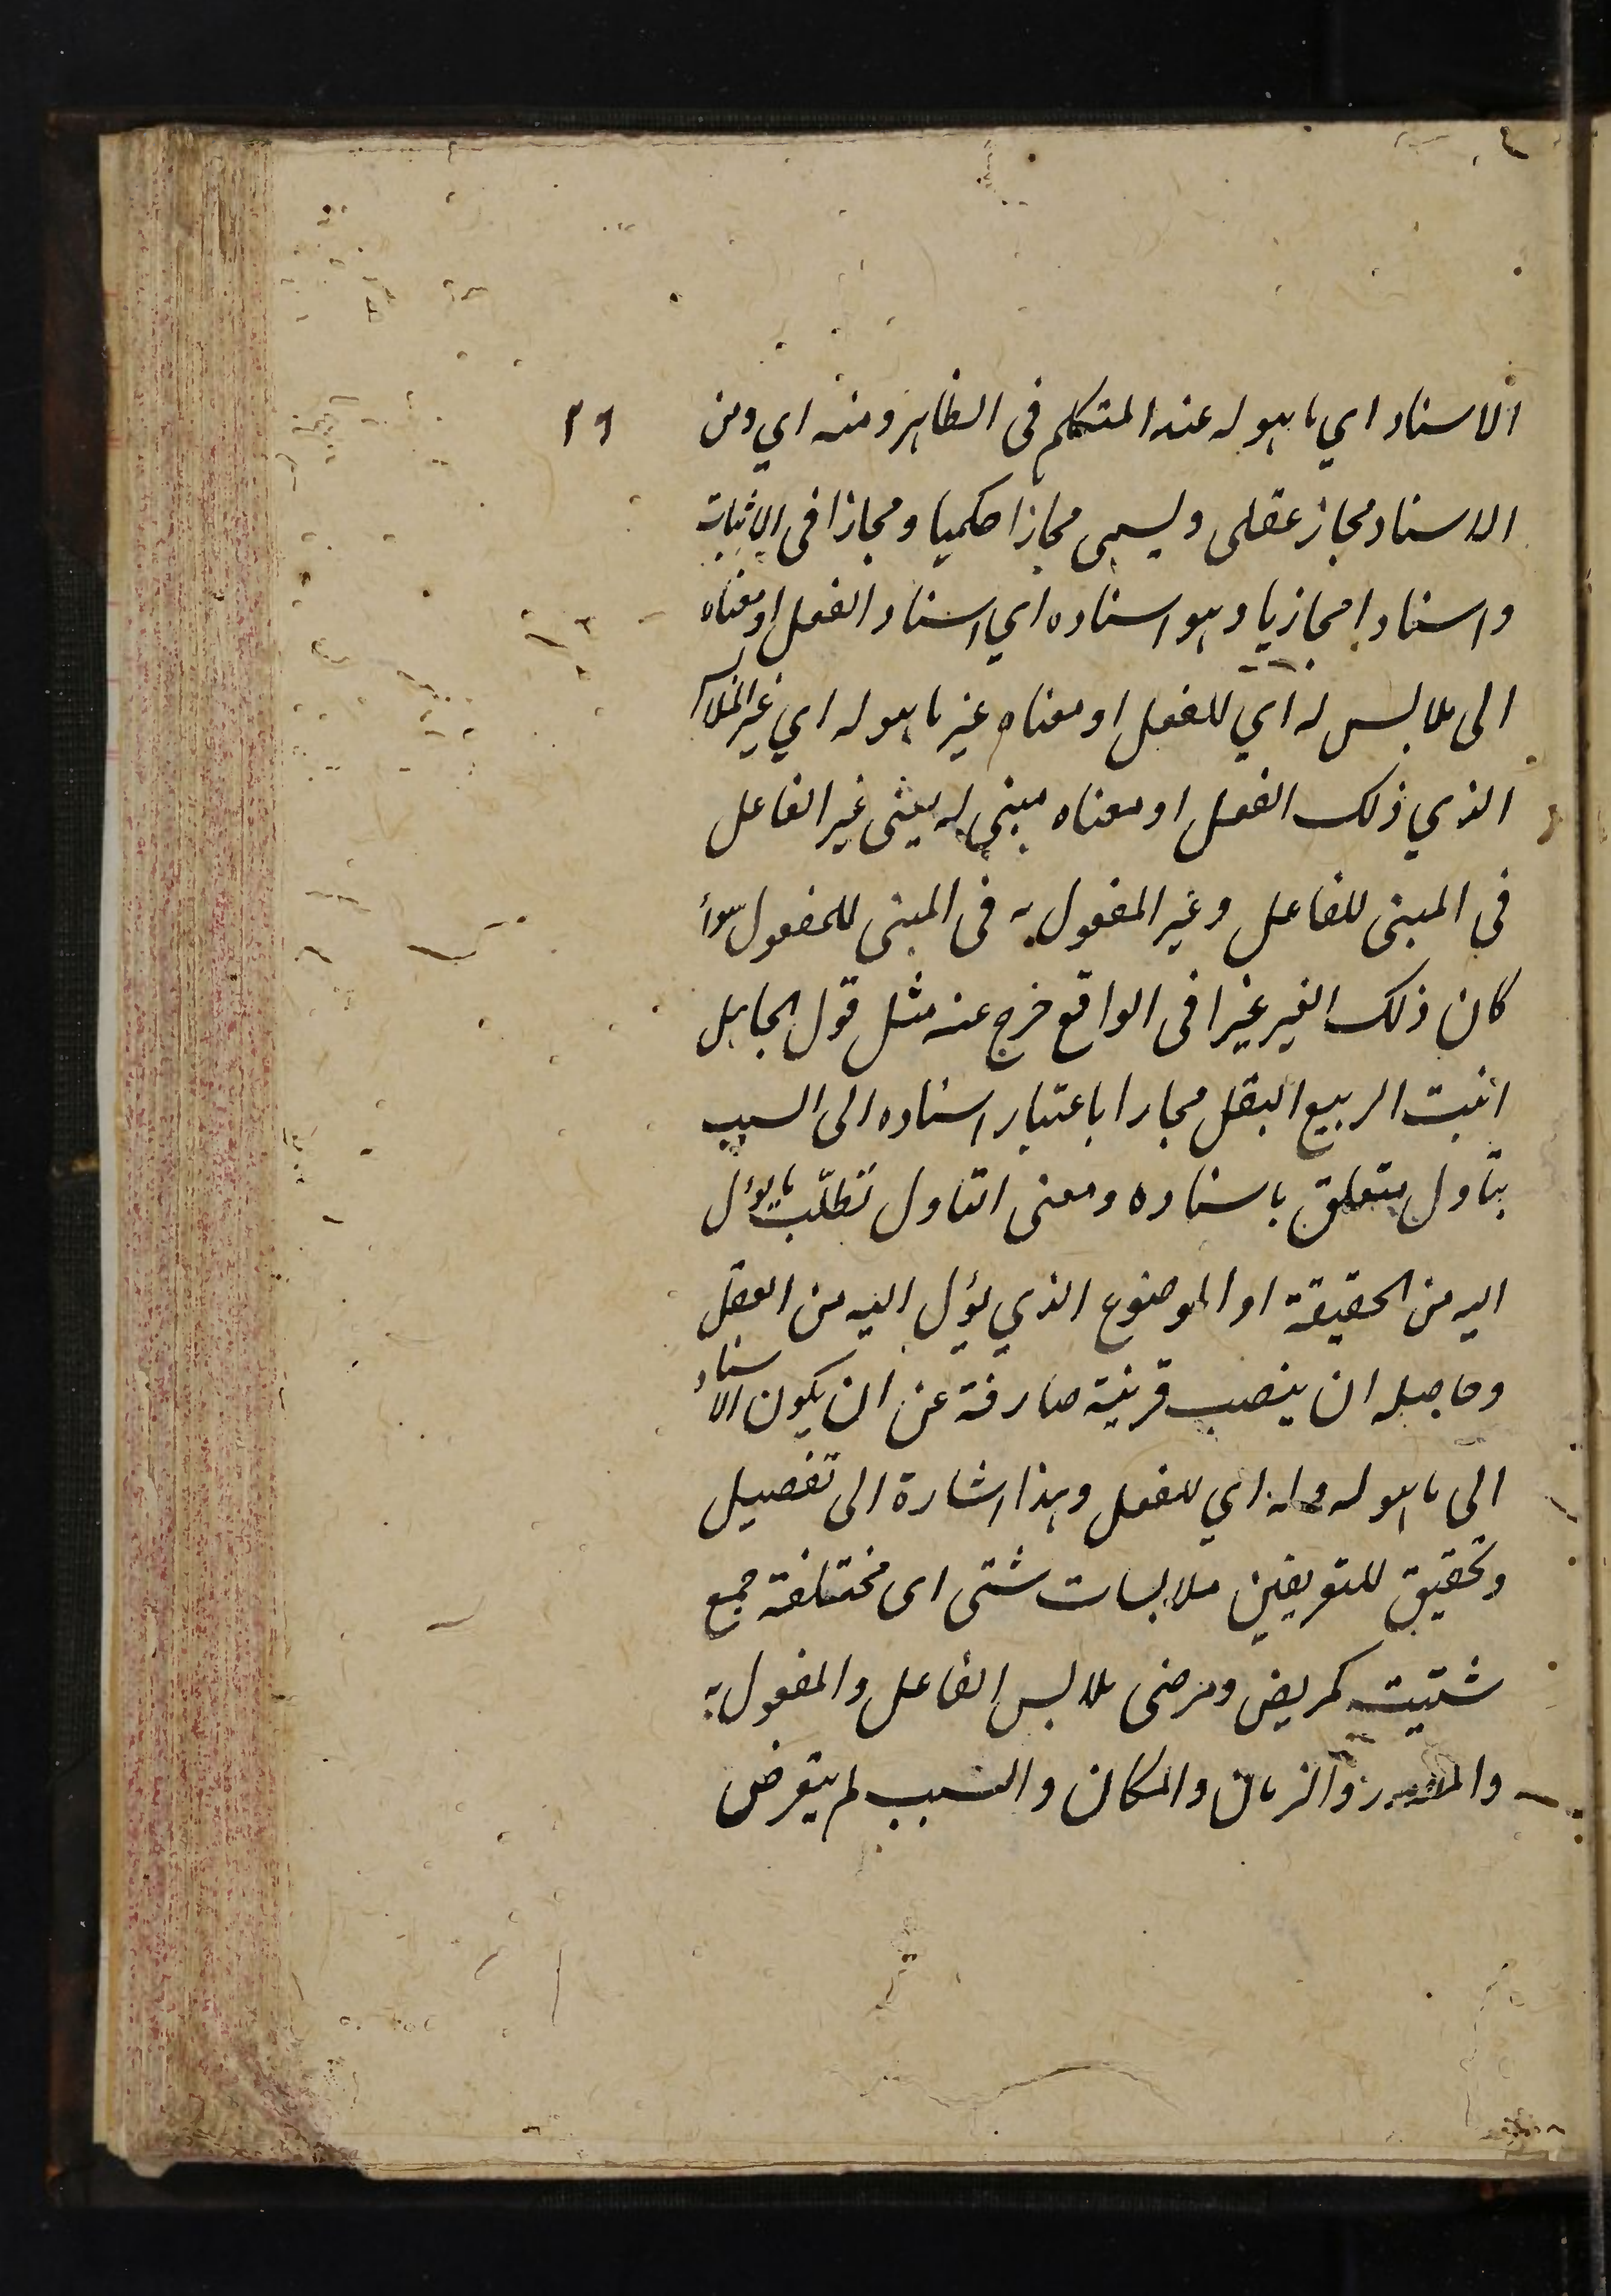 الاسناد اي ما هو له عند المتكلم فى الظاهر ومنه اي ومن
٢٩
الاسناد مجاز عقلى ويسمى مجازا حكميا ومجازا فى الاثبات
واسنادا مجازيا وهو اسناده اي اسناد الفعل او معناه
الى ملابس له اي للفعل او معناه غير ما هو له اي غير الملا
الذي ذلك الفعل او معناه مبنى له يعنى غير الفاعل
في المبنى للفاعل وغير المفعول به فى المبنى للمفعول سواء
كان ذلك الغير غيرا فى الواقع خرج عنه مثل قول الجاهل
انبت الربيع البقل مجازا باعتبار اسناده الى السبب
بتاول متعلق باسناده ومعنى التاول تطلّب ما يؤل
اليه من الحقيقة او الموضوع الذي يؤل اليه من العقل
وحاصله ان ينصب قرينة صارفة عن ان يكون الاسناد
الى ما هو له وله اي للفعل وهذا اشارة الى تفصيل
وتحقيق للتعريفين ملابسات شتى اى مختلفة جمع
شتيت كمريض ومرضى ملابس الفاعل والمفعول به
والمصدر والزمان والمكان والسبب لم يتعرض